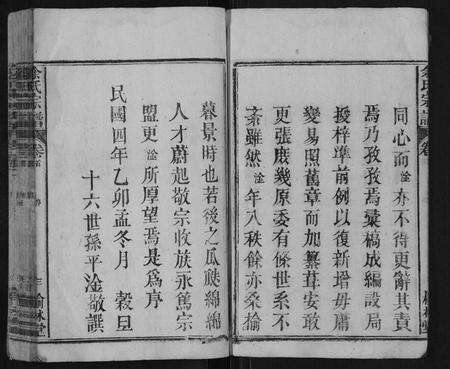 同心而淦亦不得更辭其責
焉乃孜孜焉彙稿成編設局
授梓準前例以復新增毋庸
變易照舊章而加纂葺安敢
更張庶幾原委有條世系不
紊雖然淦年八秩餘亦桑榆
暮景時也若後之瓜瓞綿綿
人才蔚起敬宗收族永篤宗
盟更淦所厚望焉是為序
民國四年乙卯孟冬月 穀旦
十六世孫平淦敬譔
余氏宗譜
榆林堂